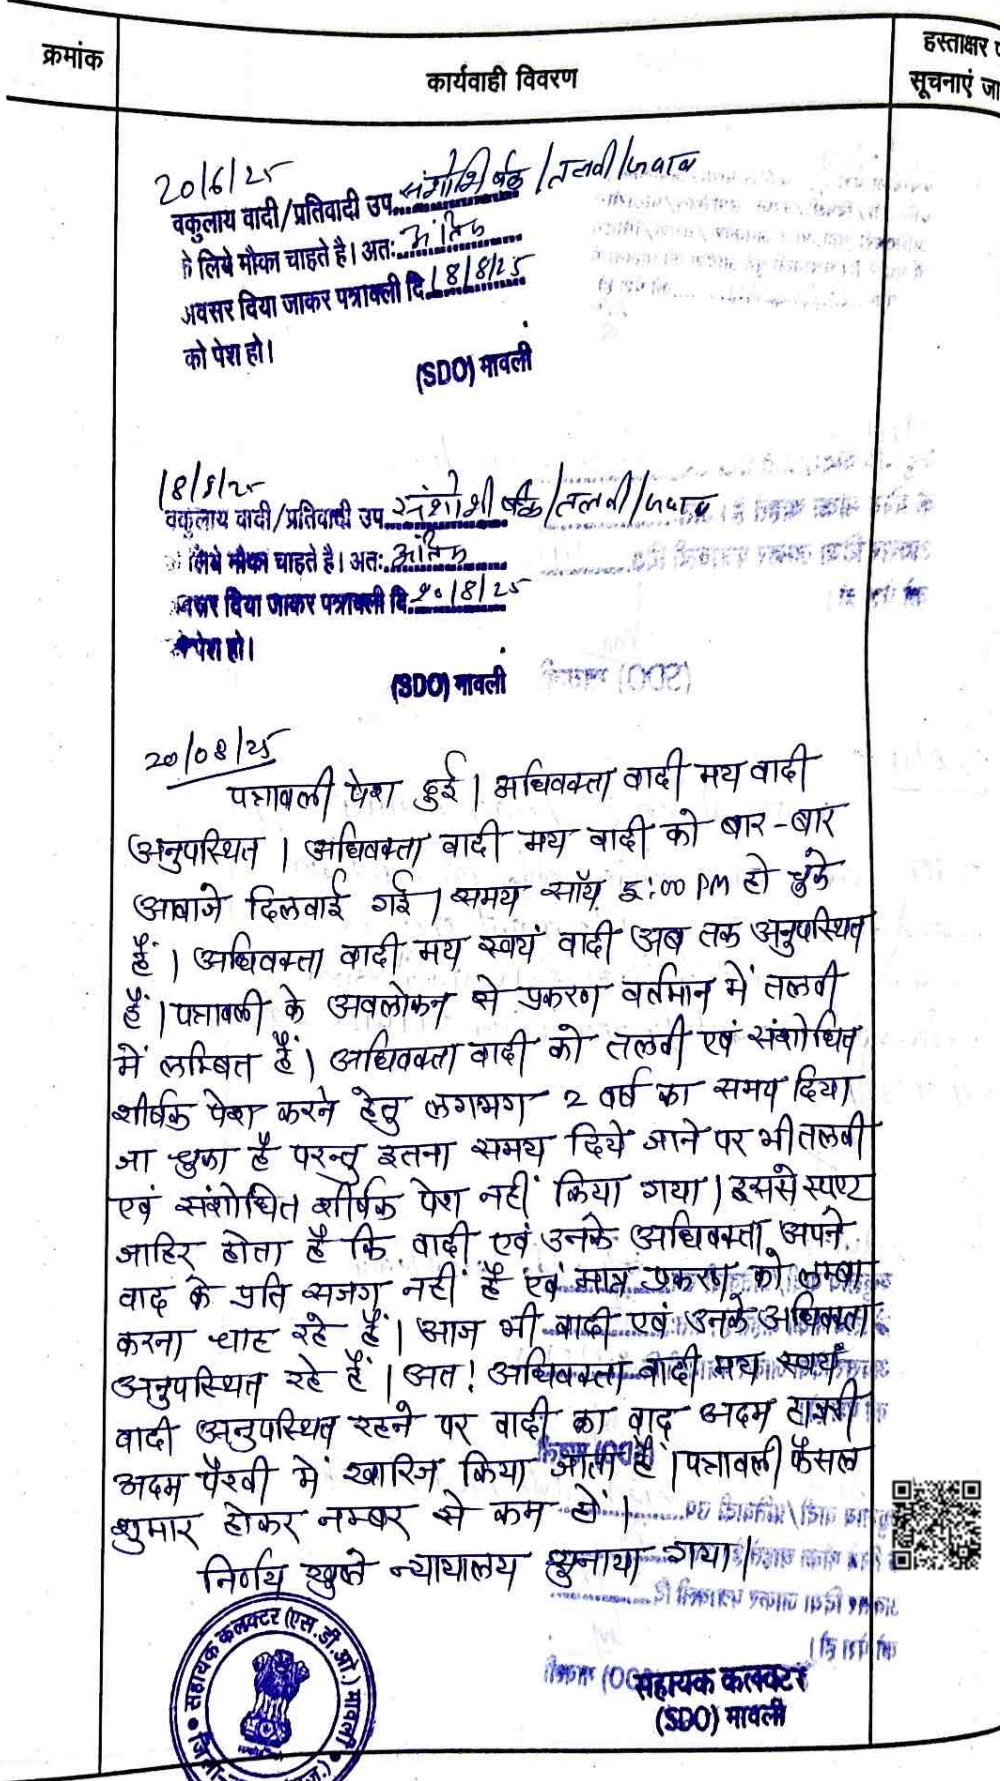 क्रमांक
कार्यवाही विवरण
हस्ताक्षर
सूचनाएं जा
20/6/25
वकुलाय वादी/प्रतिवादी उप. संशोधित शीर्षक/तलवी/जवाब
के लिये मौका चाहते है। अतः अंतिम
अवसर दिया जाकर पत्रावली दि. 18/8/25
को पेश हो।
(SDO) मावली
18/8/25
वकुलाय वादी/प्रतिवादी उप. संशोधित शीर्षक/तलवी/जवाब
लिये मौका चाहते है। अतः अंतिम
अवसर दिया जाकर पत्रावली दि. 20/8/25
को पेश हो।
(SDO) मावली
20/08/25
पत्रावली पेश हुई। अधिवक्ता वादी मय वादी
अनुपस्थित। अधिवक्ता वादी मय वादी को बार-बार
आवाजे दिलवाई गई। समय सॉय 5:00 PM हो चुके
हैं। अधिवक्ता वादी मय स्वयं वादी अब तक अनुपस्थित
हैं। पत्रावली के अवलोकन से प्रकरण वर्तमान में तलवी
में लम्बित हैं। अधिवक्ता वादी को तलवी एवं संशोधित
शीर्षक पेश करने हेतु लगभग 2 वर्ष का समय दिया
जा चुका है परन्तु इतना समय दिये जाने पर भी तलवी
एवं संशोधित शीर्षक पेश नहीं किया गया। इससे स्पष्ट
जाहिर होता है कि वादी एवं उनके अधिवक्ता अपने
वाद के प्रति सजग नहीं है एवं मात्र प्रकरण को लम्बा
करना चाह रहे हैं। आज भी वादी एवं उनके अधिवक्ता
अनुपस्थित रहे हैं। अत: अधिवक्ता वादी मय स्वयं
वादी अनुपस्थित रहने पर वादी का वाद अदम हाजरी
अदम पैरवी में खारिज किया जाता है। पत्रावली फैसल
शुमार होकर नम्बर से कम हो।
निर्णय खुले न्यायालय सुनाया गया।
सहायक कलक्टर (एस.डी.ओ.) मावली
सहायक कलक्टर
(SDO) मावली